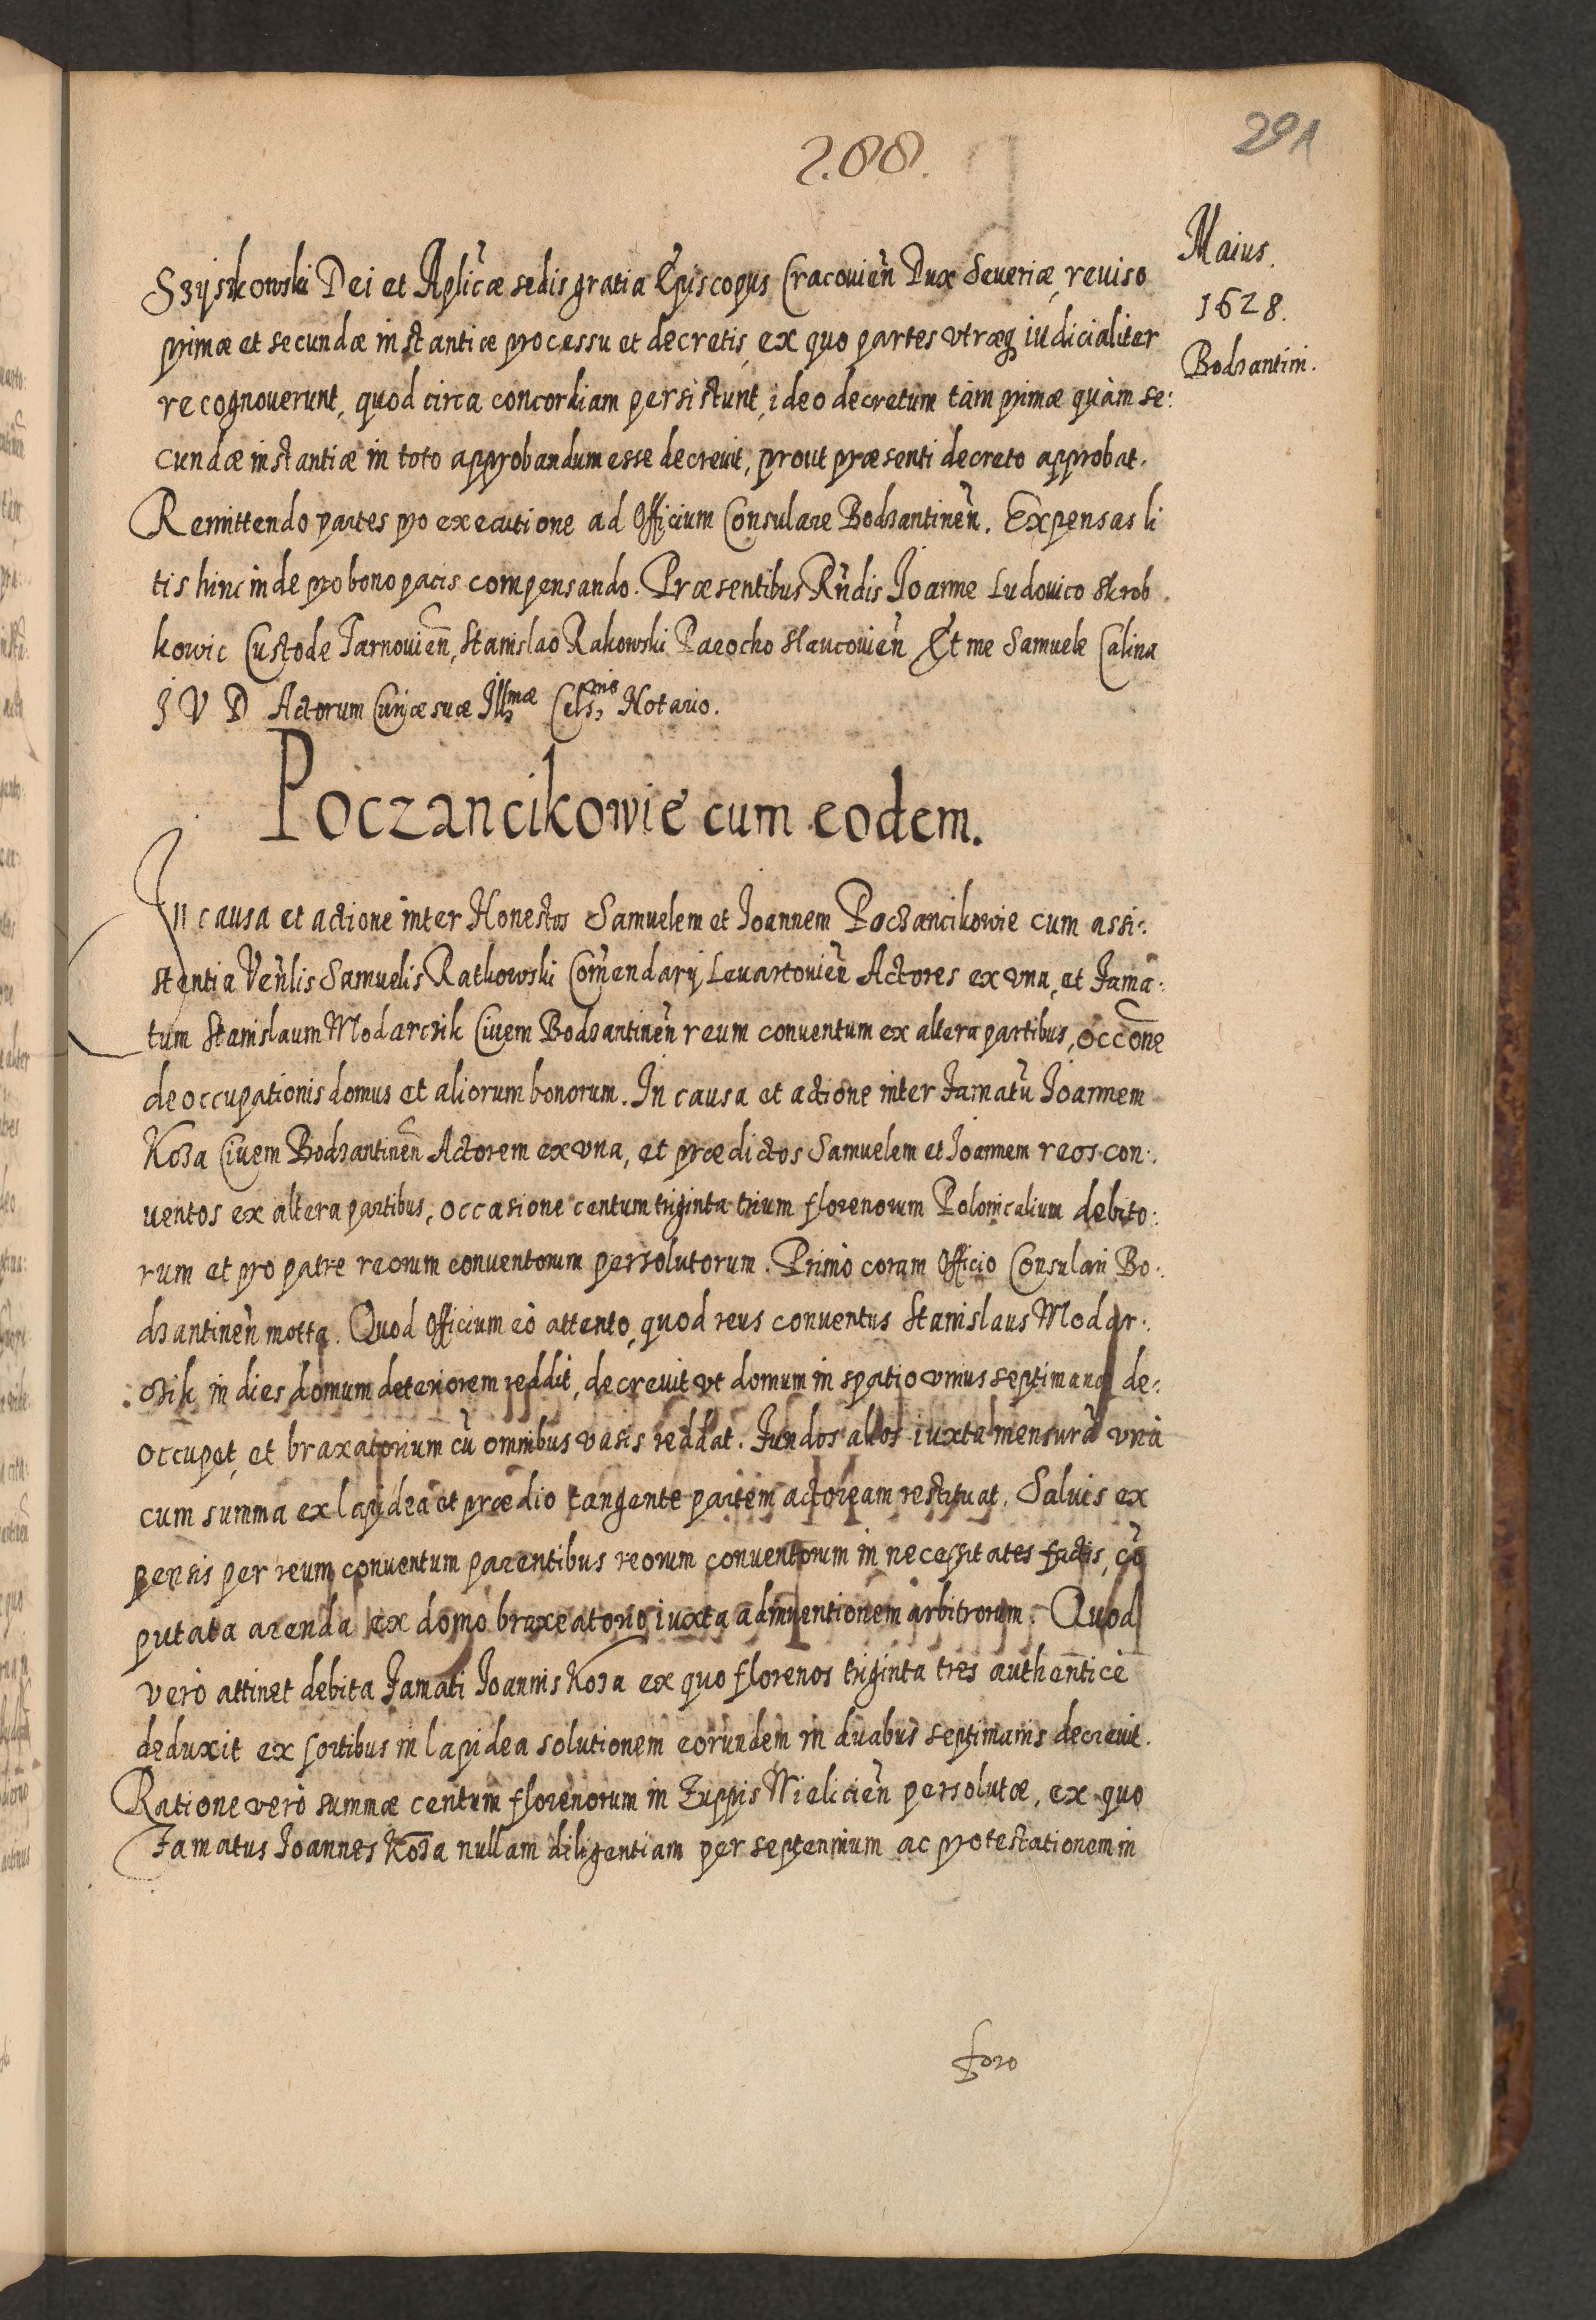 288.
291
Maius.
1628.
Bodzantini.
Szyszkowski Dei et Aplicæ sedis gratia Episcopus Cracovien̄ Dux Seueriæ, reuiso
primæ et secundæ instantiæ processu et decretis, ex quo partes vtræq iudicialiter
recognouerunt, quod circa concordiam persistunt, ideo decretum tàm primæ quàm se:
cundæ instantiæ in toto approbandum esse decreuit, prout præsenti decreto approbat.
Remittendo partes pro executione ad Officium Consulare Bodzantinen̄. Expensas li
tis hinc inde pro bono pacis compensando. Præsentibus Rn̄dis Joanne Ludouico Skrob
kowic Custode Tarnouien̄, Stanislao Rakowski Parocho Slaucouien̄ Et me Samuele Calina
J V D Actorum Curiæ suæ Illmæ Celsnis Notario.
Poczancikowie cum eodem.
In causa et actione inter Honestos Samuelem et Joannem Poczancikowie cum assi:
stentia Ven̄lis Samuelis Ratkowski Com̄endarij Leuartouien̄ Actores ex vna, et Fama:
tum Stanislaum Modarczik Ciuem Bodzantinen̄ reum conuentum ex altera partibus, occōne
deoccupationis domus et aliorum bonorum. In causa et actione inter Famatū Joannem
Koza Ciuem Bodzantinen̄ Actorem ex vna, et prædictos Samuelem et Joannem reos con:
uentos ex altera partibus, occasione centum triginta trium florenorum Polonicalium debito:
rum et pro patre reorum conuentorum persolutorum. Primò coram Officio Consulari Bo:
dzantinen̄ motta. Quod Officium eò attento, quod reus conuentus Stanislaus Modar:
czik in dies domum deteriorem reddit, decreuit vt domum in spatio vnius septimanæ de:
occupet, et braxatorium cū omnibus vasis reddat. Fundos alios iuxta mensurā vnà
cum summa ex lapidea et prædio tangente partem actoream restituat. Saluis ex
pensis per reum conuentum parentibus reorum conuentorum in necessitates factis, cō
putata arenda ex domo braxeatorio iuxta adinuentionem arbitrorum. Quod
verò attinet debita Famati Joannis Koza ex quo florenos triginta tres authenticè
deduxit ex sortibus in lapidea solutionem eorundem in duabus septimanis decreuit.
Ratione verò summæ centum florenorum in Zuppis Wielicien̄ persolutæ, ex quo
Famatus Joannes Koza nullam diligentiam per septennium ac protestationem in
foro